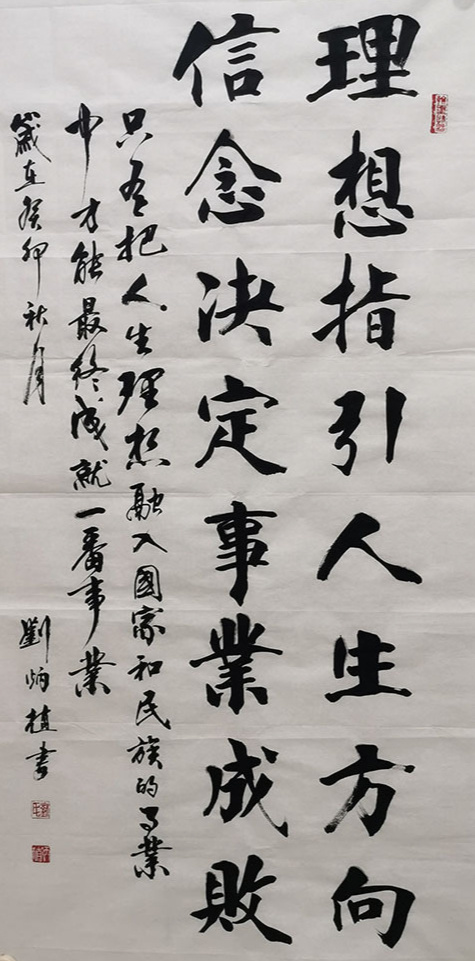 理想指引人生方向
信念决定事業成败
只有把人生理想融入國家和民族的事業
中才能最终成就一番事業
歲在癸卯秋月
劉炳植书